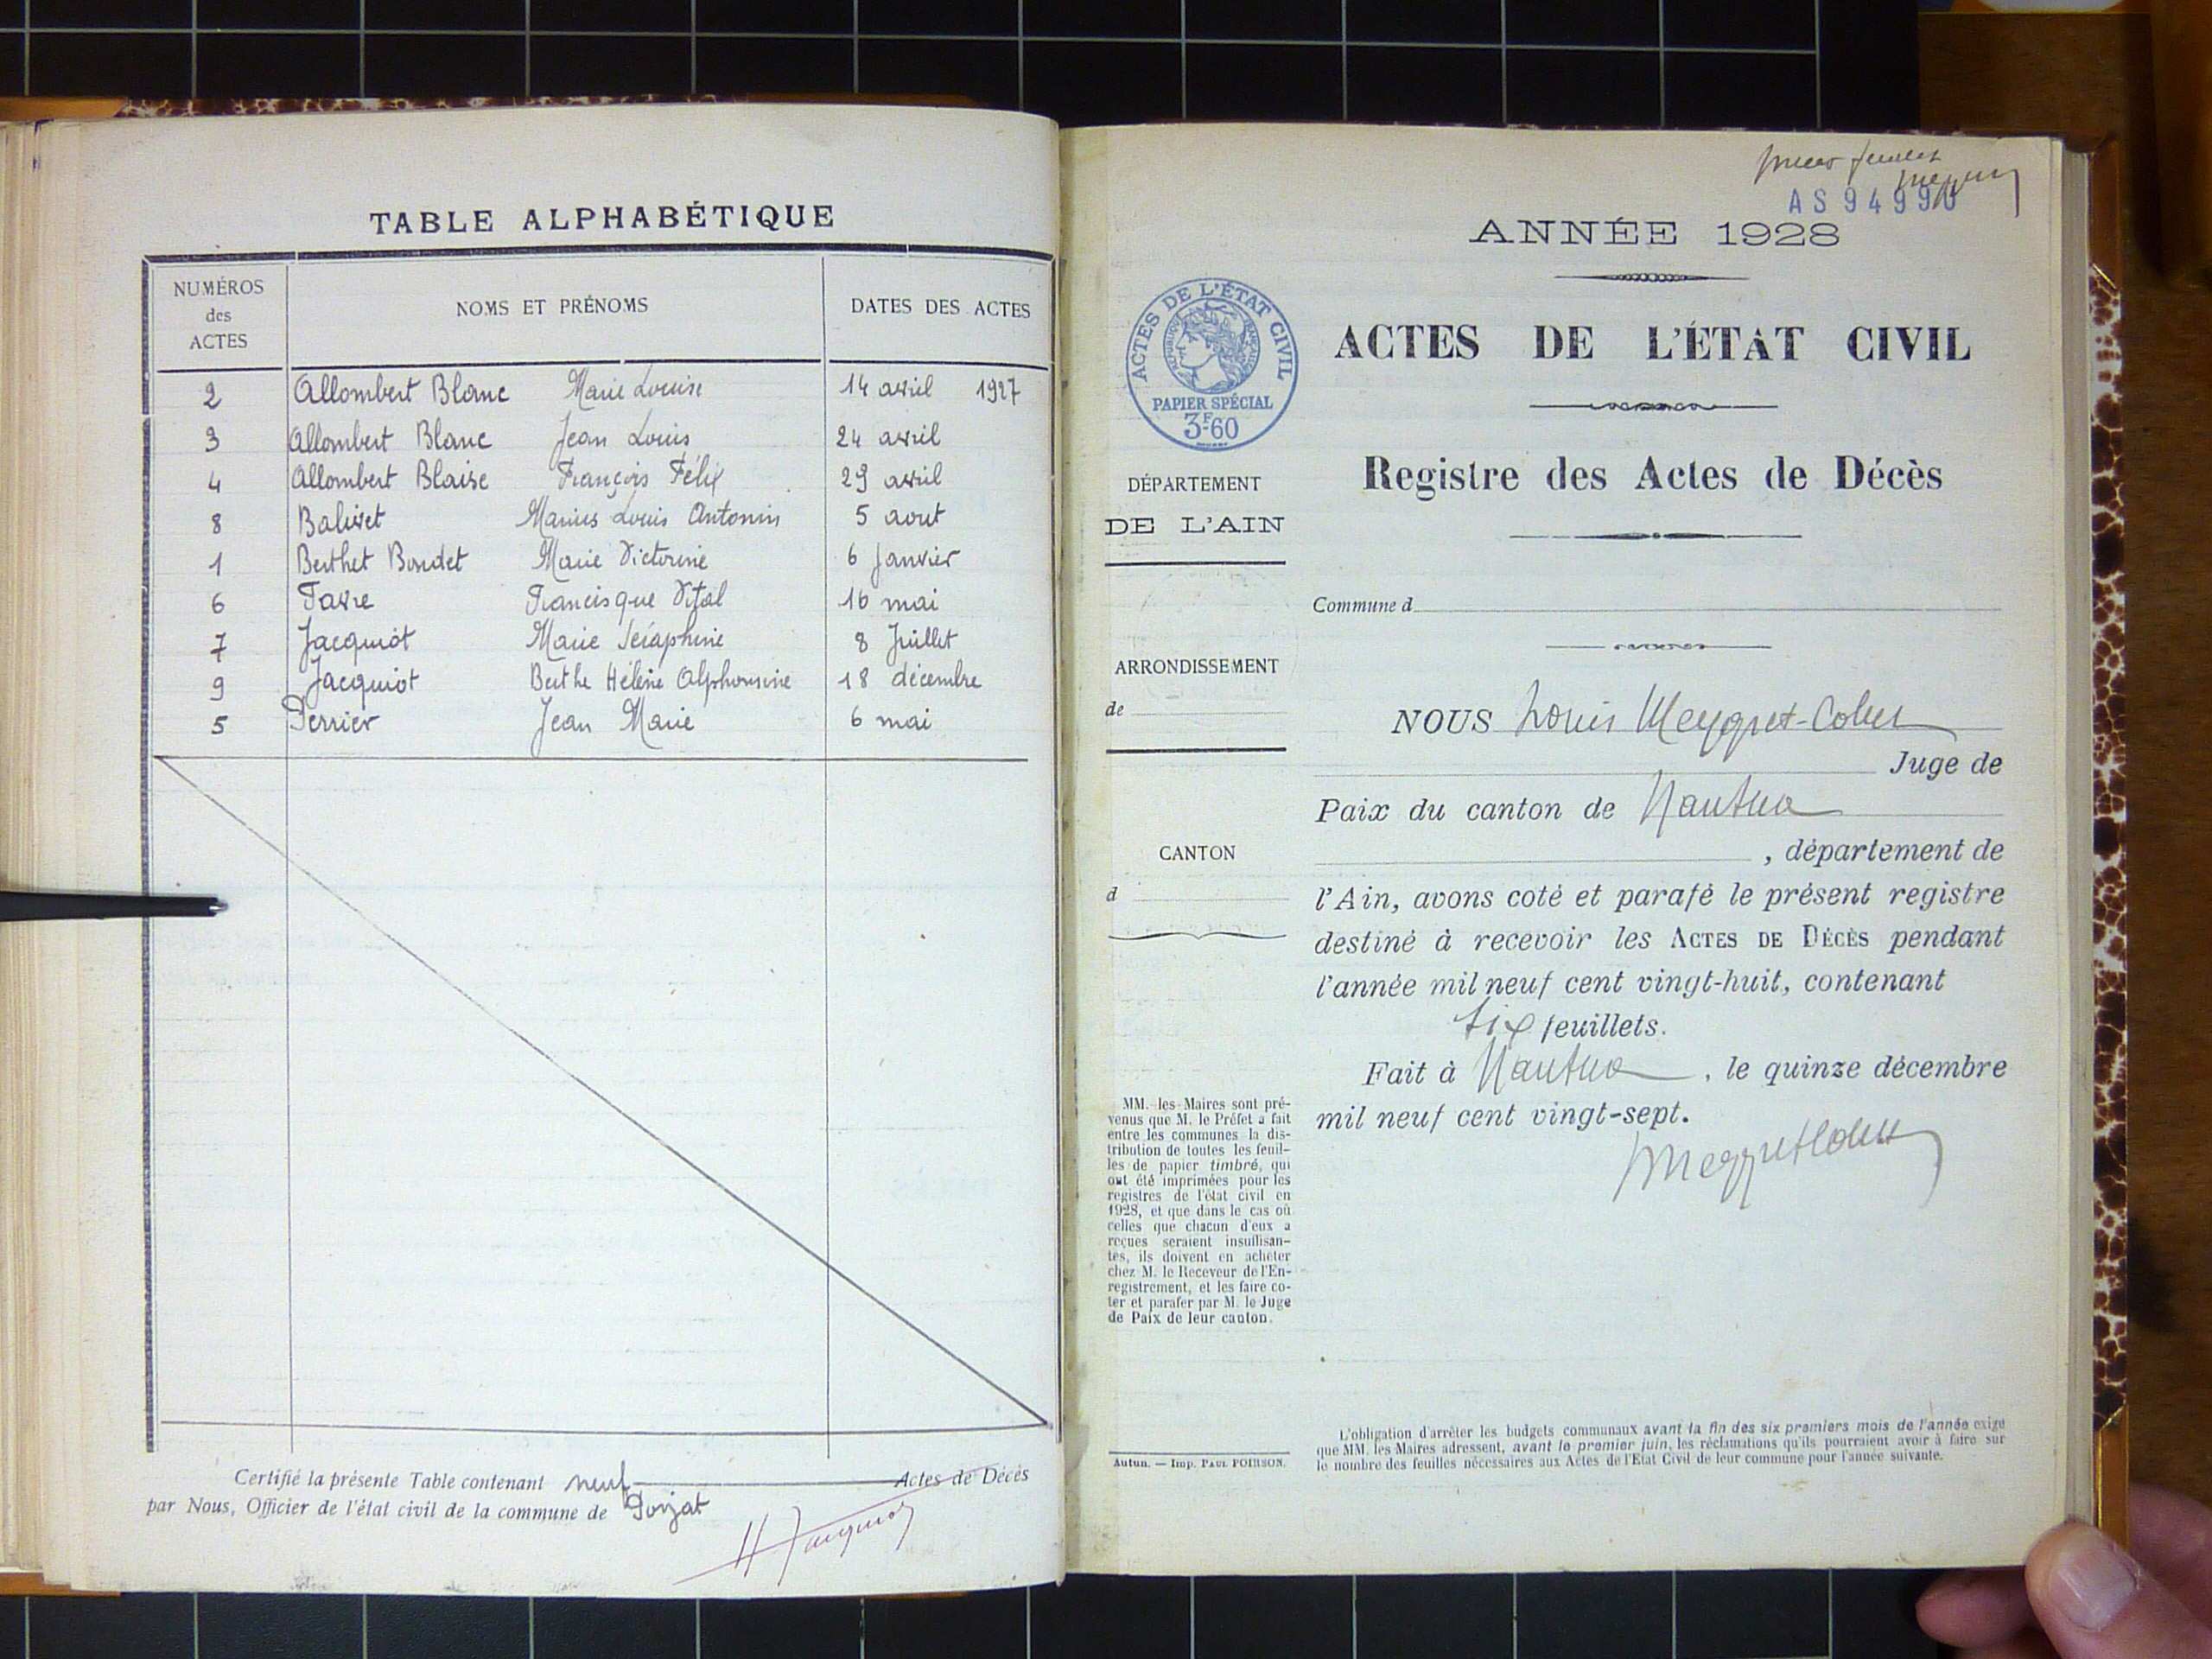 TABLE ALPHABÉTIQUE
NUMÉROS
des
ACTES
NOMS ET PRÉNOMS
DATES DES ACTES
2 Allombert Blanc Marie Louise 14 avril 1927
3 Allombert Blanc Jean Louis 24 avril
4 Allombert Blaise François Félix 29 avril
8 Balivet Marius Louis Antonin 5 aout
1 Berthet Bondet Marie Victorine 6 Janvier
6 Favre Francisque Vital 16 mai
7 Jacquiot Marie Séraphine 8 Juillet
9 Jacquiot Berthe Hélène Alphonsine 18 décembre
5 Perrier Jean Marie 6 mai
Certifié la présente Table contenant neuf Actes de Décès
par Nous, Officier de l'état civil de la commune de Porjat
AS 9499
ANNÉE 1928
ACTES DE L'ÉTAT CIVIL
RÉPUBLIQUE FRANÇAISE
PAPIER SPÉCIAL
3F60
ACTES DE L'ÉTAT CIVIL
Registre des Actes de Décès
DÉPARTEMENT
DE L'AIN
Commune d
ARRONDISSEMENT
de
NOUS Louis Meygret-Collet
Juge de
Paix du canton de Nantua
CANTON
d
, département de
l'Ain, avons coté et parafé le présent registre
destiné à recevoir les ACTES DE DÉCÈS pendant
l'année mil neuf cent vingt-huit, contenant
six feuillets.
Fait à Nantua, le quinze décembre
mil neuf cent vingt-sept.
MM. les Maires sont pré-
venus que M. le Préfet a fait
entre les communes la dis-
tribution de toutes les feuil-
les de papier timbré, qui
ont été imprimées pour les
registres de l'état civil en
1928, et que dans le cas où
celles que chacun d'eux a
reçues seraient insuffisan-
tes, ils doivent en acheter
chez M. le Receveur de l'En-
registrement, et les faire co-
ter et parafer par M. le Juge
de Paix de leur canton.
Autun. — Imp. PAUL POIRSON.
L'obligation d'arrêter les budgets communaux avant la fin des six premiers mois de l'année exige
que MM. les Maires adressent, avant le premier juin, les réclamations qu'ils pourraient avoir à faire sur
le nombre des feuilles nécessaires aux Actes de l'Etat Civil de leur commune pour l'année suivante.